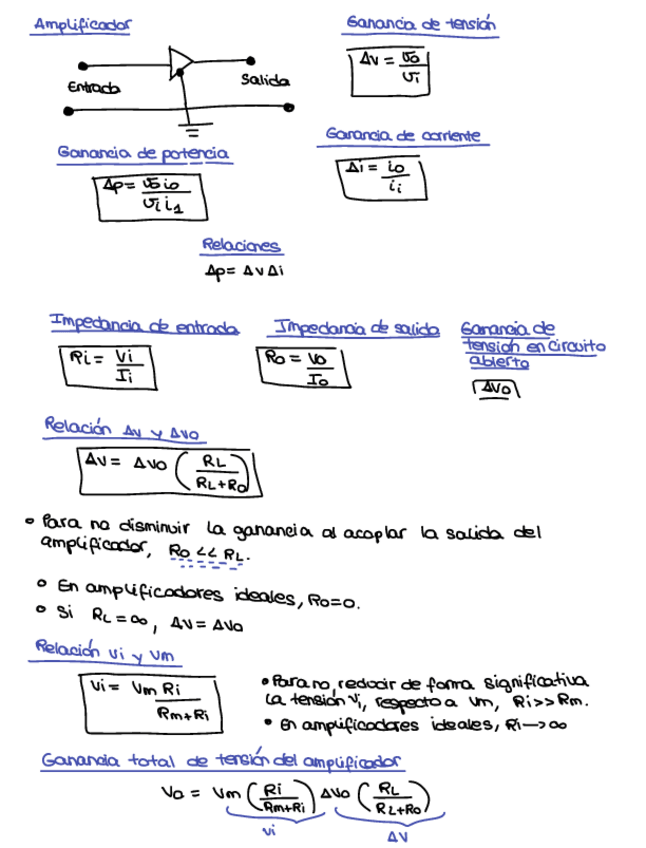 Amplificador
Entrada
Salida
Ganancia de tensión
Δv = vo/vi
Ganancia de corriente
Δi = io/ii
Ganancia de potencia
Δp = vo io/vi i1
Relaciones
Δp = Δv Δi
Impedancia de entrada
Ri = Vi/Ii
Impedancia de salida
Ro = Vo/Io
Ganancia de
tensión en circuito
abierto
Δvo
Relación Δv y Δvo
Δv = Δvo (RL/RL+Ro)
• Para no disminuir la ganancia al acoplar la salida del
amplificador, Ro << RL.
• En amplificadores ideales, Ro=0.
• Si RL = ∞, Δv = Δvo
Relación vi y vm
Vi = Vm Ri/Rm+Ri
• Para no reducir de forma significativa
la tensión vi, respecto a vm, Ri>>Rm.
• En amplificadores ideales, Ri→∞
Ganancia total de tensión del amplificador
Vo = Vm (Ri/Rm+Ri) Δvo (RL/RL+Ro)
vi
Δv